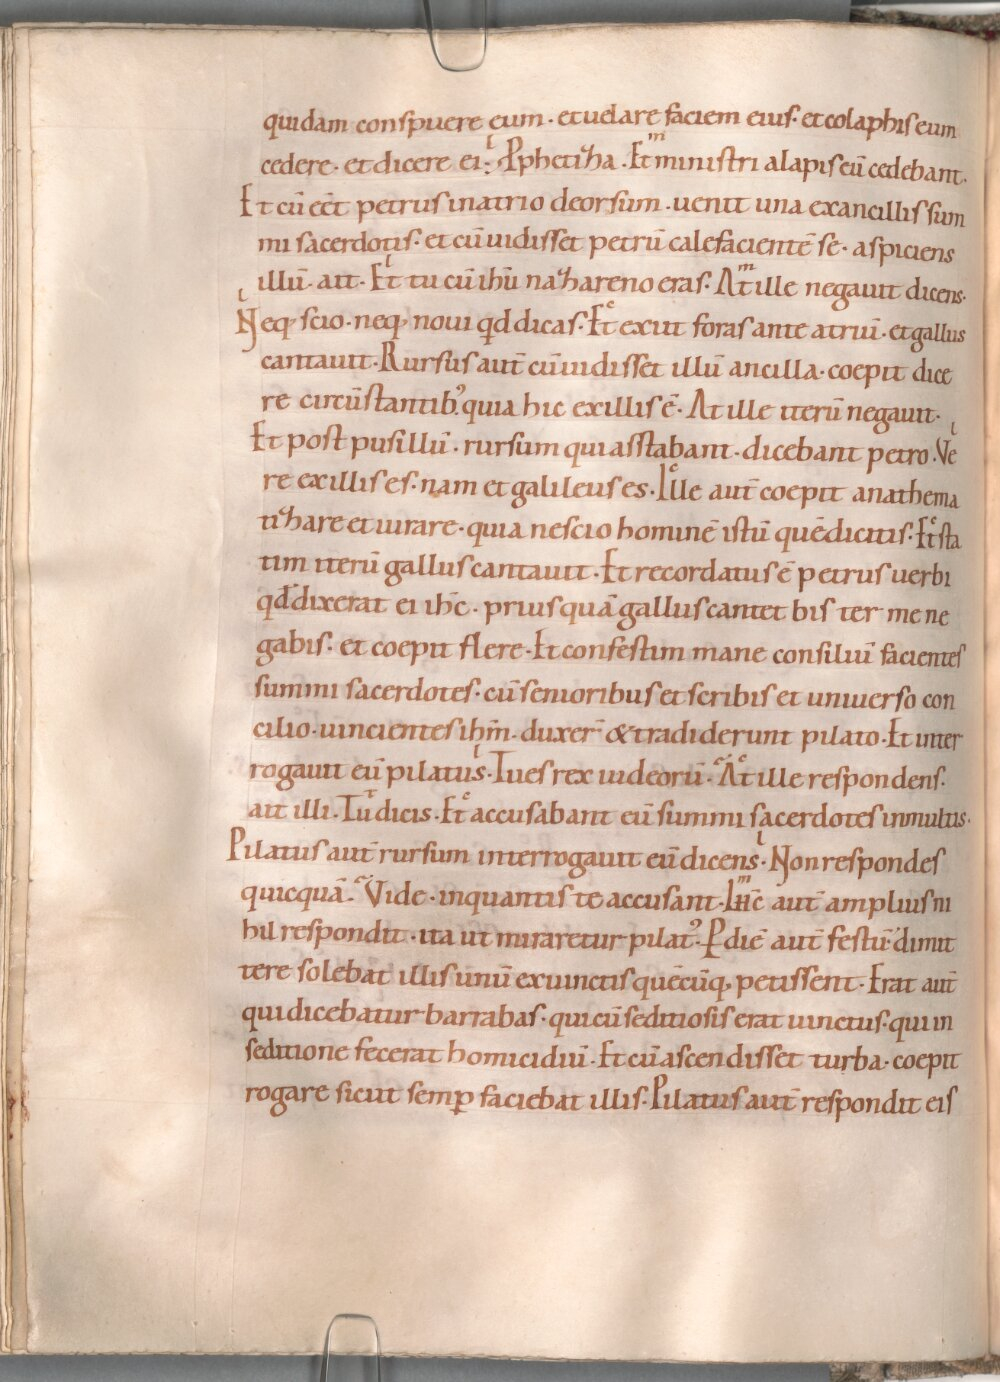 quidam conspuere eum · et uelare faciem eius · et colaphis eum
cedere · et dicere ei ; Pphetiza · Et ministri alapis eū cedebant ·
Et cū eēt petrus in atrio deorsum · uenit una ex ancillis sum
mi sacerdotis · et cū uidisset petrū calefacientē se · aspiciens
illū · ait · Et tu cū ihū nazhareno eras · At ille negauit dicens ·
Neq; scio · neq; noui qđ dicas · Et exiit foras ante atriū · et gallus
cantauit · Rursus aut̄ cū uidisset illū ancilla · coepit dice
re circūstantib; quia hic ex illis ē · At ille iterū negauit ·
Et post pusillū · rursum qui asstabant · dicebant petro · Ve
re ex illis es · nam et galileus es · Ille aut̄ coepit anathema
tizhare et iurare · quia nescio hominē istū quē dicitis · Et sta
tim iterū gallus cantauit · Et recordatus ē petrus uerbi
qđ dixerat ei ihc̄ · prius quā gallus cantet bis ter me ne
gabis · et coepit flere · Et confestim mane consiliū facientes
summi sacerdotes · cū senioribus et scribis et uniuerso con
cilio · uincientes ihm̄ · duxer̄ & tradiderunt pilato · Et inter
rogauit eū pilatus · Tu es rex iudeorū · At ille respondens ·
ait illi · Tu dicis · Et accusabant eū summi sacerdotes in multis ·
Pilatus aut̄ rursum interrogauit eū dicens · Non respondes
quicquā · Vide · in quantis te accusant · Ihc̄ aut̄ amplius ni
hil respondit · ita ut miraretur pilat' · P diē aut̄ festū dimit
tere solebat illis unū ex uinctis quēcūq; petissent · Erat aut̄
qui dicebatur barrabas · qui cū seditiosis erat uinctus · qui in
seditione fecerat homicidiū · Et cū ascendisset turba · coepit
rogare sicut semp faciebat illis · Pilatus aut̄ respondit eis